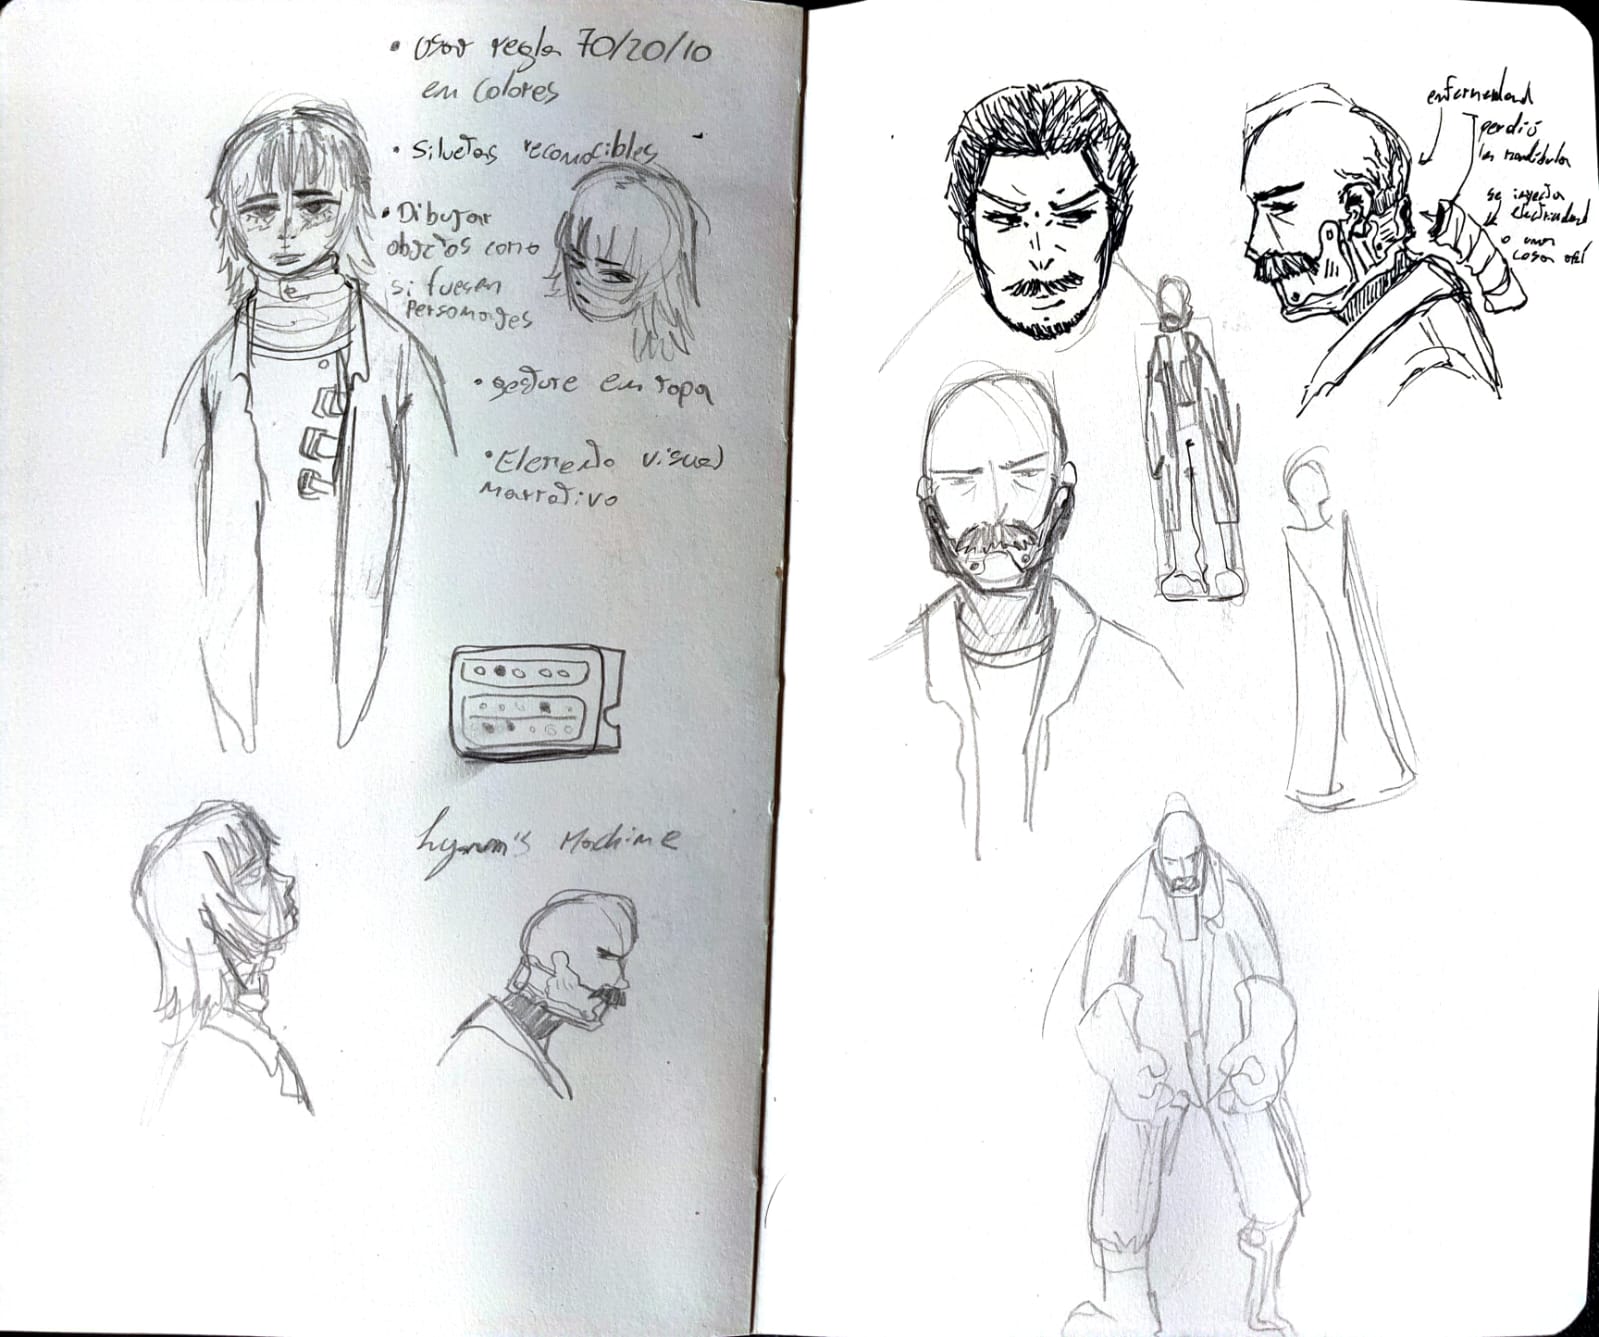 • Usar regla 70/20/10
en colores
• Siluetas reconocibles
• Dibujar
objetos como
si fuesen
personajes
• gesture en ropa
• Elemento visual
narrativo
Machine
enfermedad
perdió
la mandíbula
se inyecta
electricidad
o una
cosa así